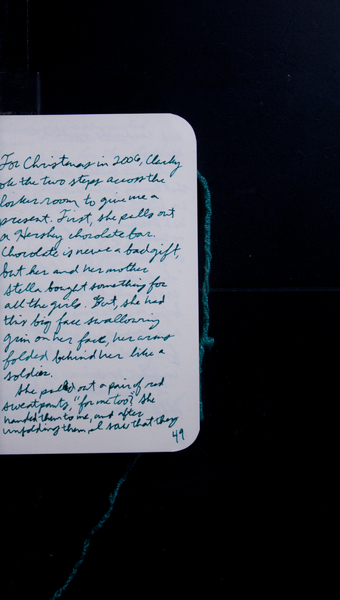 For Christmas in 2006, Clarky
ok the two steps across the
locker room to give me a
present. First, she pulls out
a Hershey chocolate bar.
Chocolate is never a bad gift,
but her and her mother
Stella bought something for
all the girls. But, she had
this big face swallowing
grin on her face, her arms
folded behind her like a
soldier.
She pulled out a pair of red
sweatpants, "for me too? She
handed them to me, and after
unfolding them, I saw that they
49